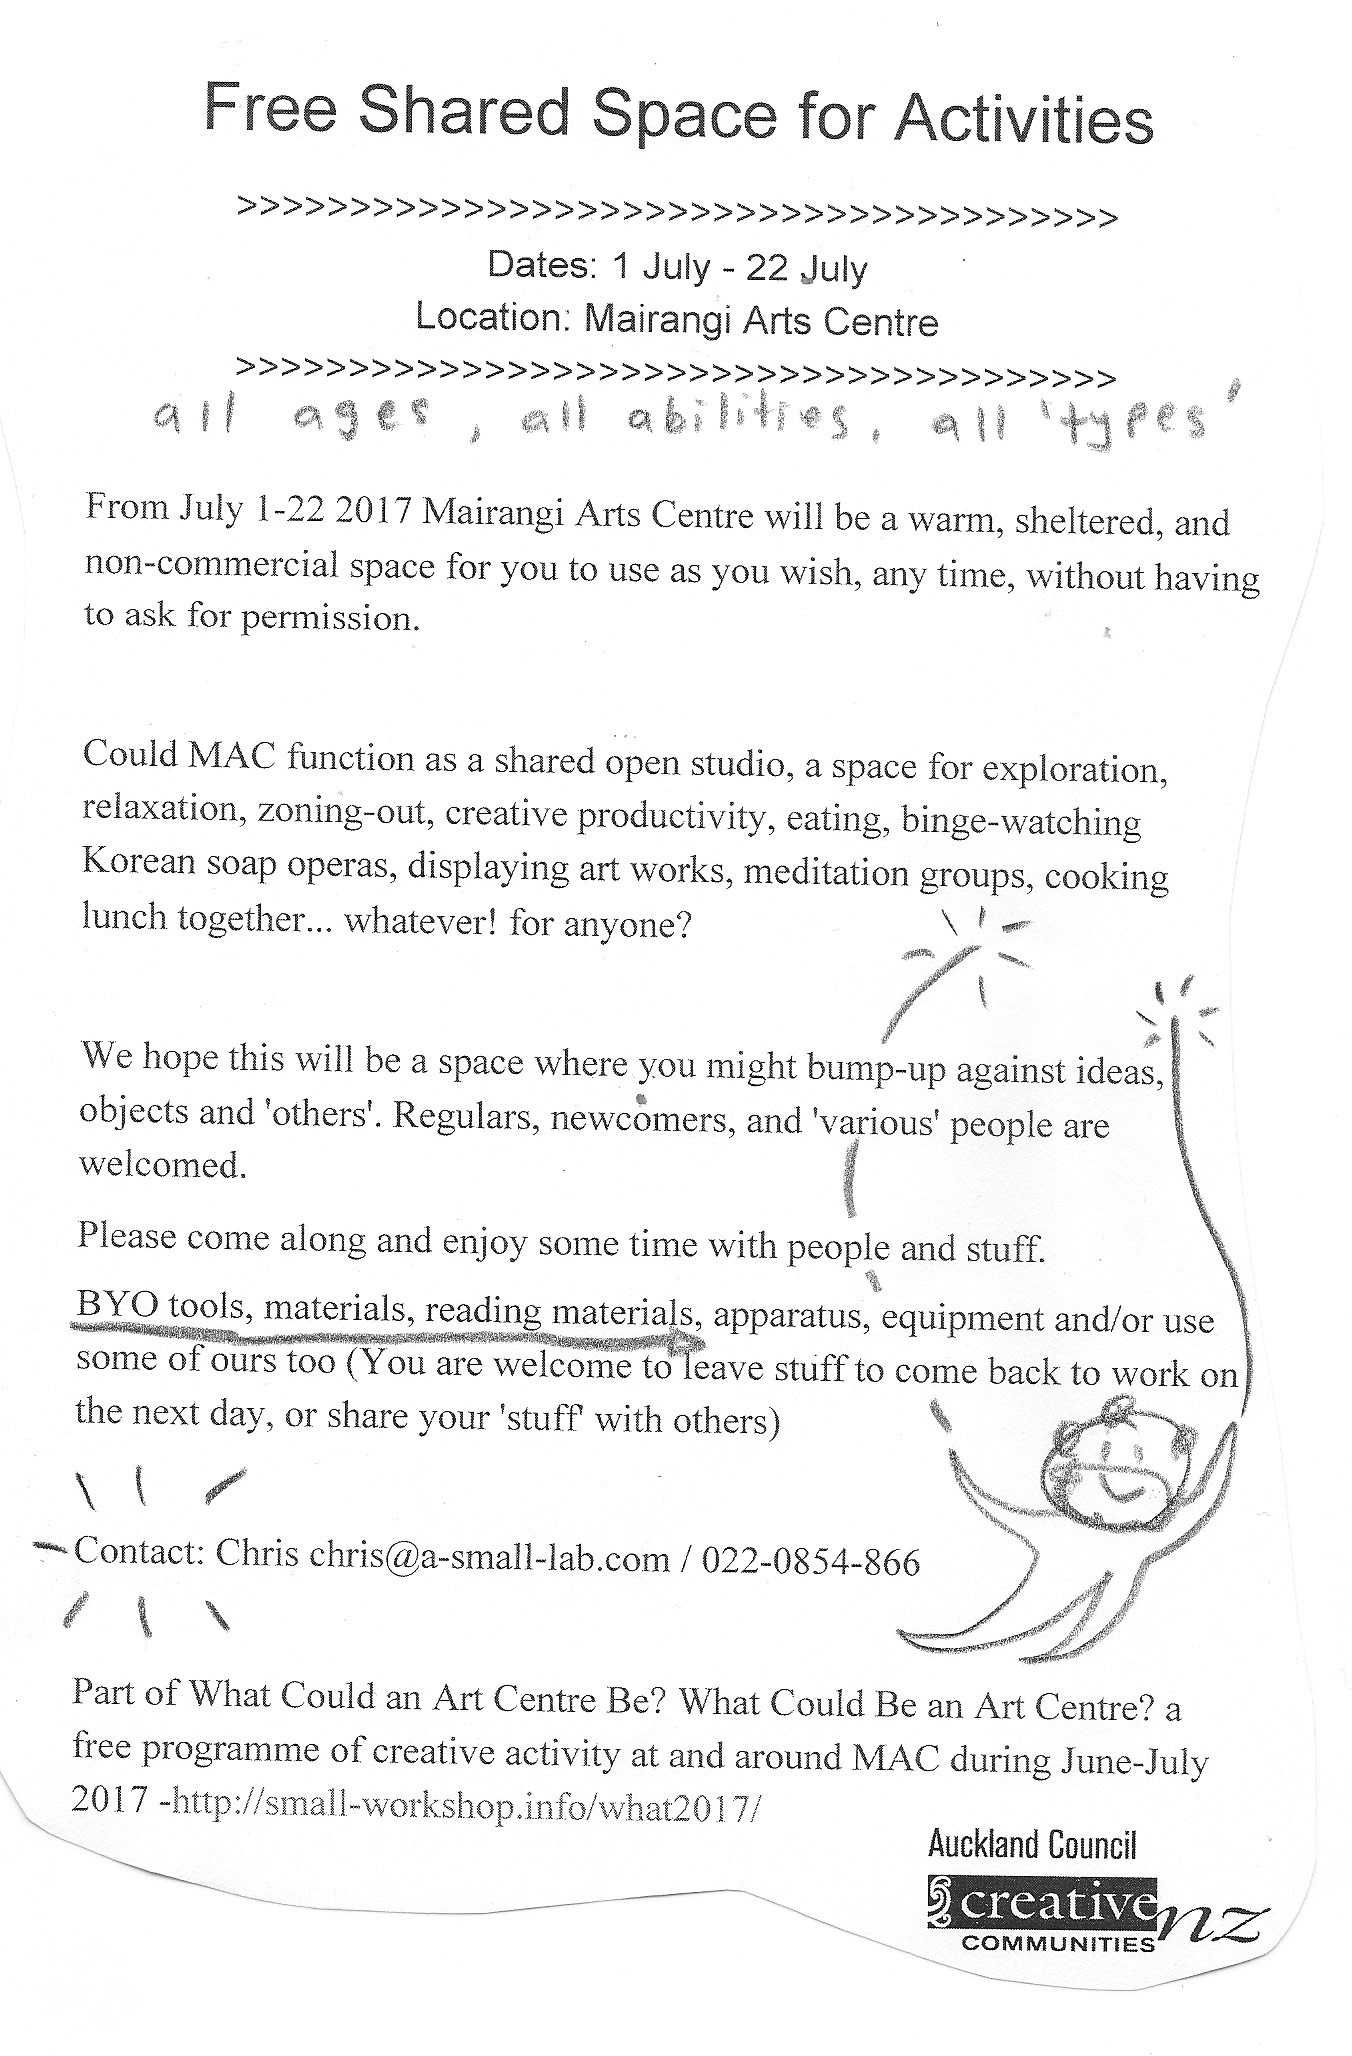 Free Shared Space for Activities
>>>>>>>>>>>>>>>>>>>>>>>>>>>>>>>>>>>>>>>
Dates: 1 July - 22 July
Location: Mairangi Arts Centre
>>>>>>>>>>>>>>>>>>>>>>>>>>>>>>>>>>>>>>>
all ages, all abilities, all 'types'
From July 1-22 2017 Mairangi Arts Centre will be a warm, sheltered, and
non-commercial space for you to use as you wish, any time, without having
to ask for permission.
Could MAC function as a shared open studio, a space for exploration,
relaxation, zoning-out, creative productivity, eating, binge-watching
Korean soap operas, displaying art works, meditation groups, cooking
lunch together... whatever! for anyone?
We hope this will be a space where you might bump-up against ideas,
objects and 'others'. Regulars, newcomers, and 'various' people are
welcomed.
Please come along and enjoy some time with people and stuff.
BYO tools, materials, reading materials, apparatus, equipment and/or use
some of ours too (You are welcome to leave stuff to come back to work on
the next day, or share your 'stuff' with others)
Contact: Chris chris@a-small-lab.com / 022-0854-866
Part of What Could an Art Centre Be? What Could Be an Art Centre? a
free programme of creative activity at and around MAC during June-July
2017 -http://small-workshop.info/what2017/
Auckland Council
creative nz
COMMUNITIES